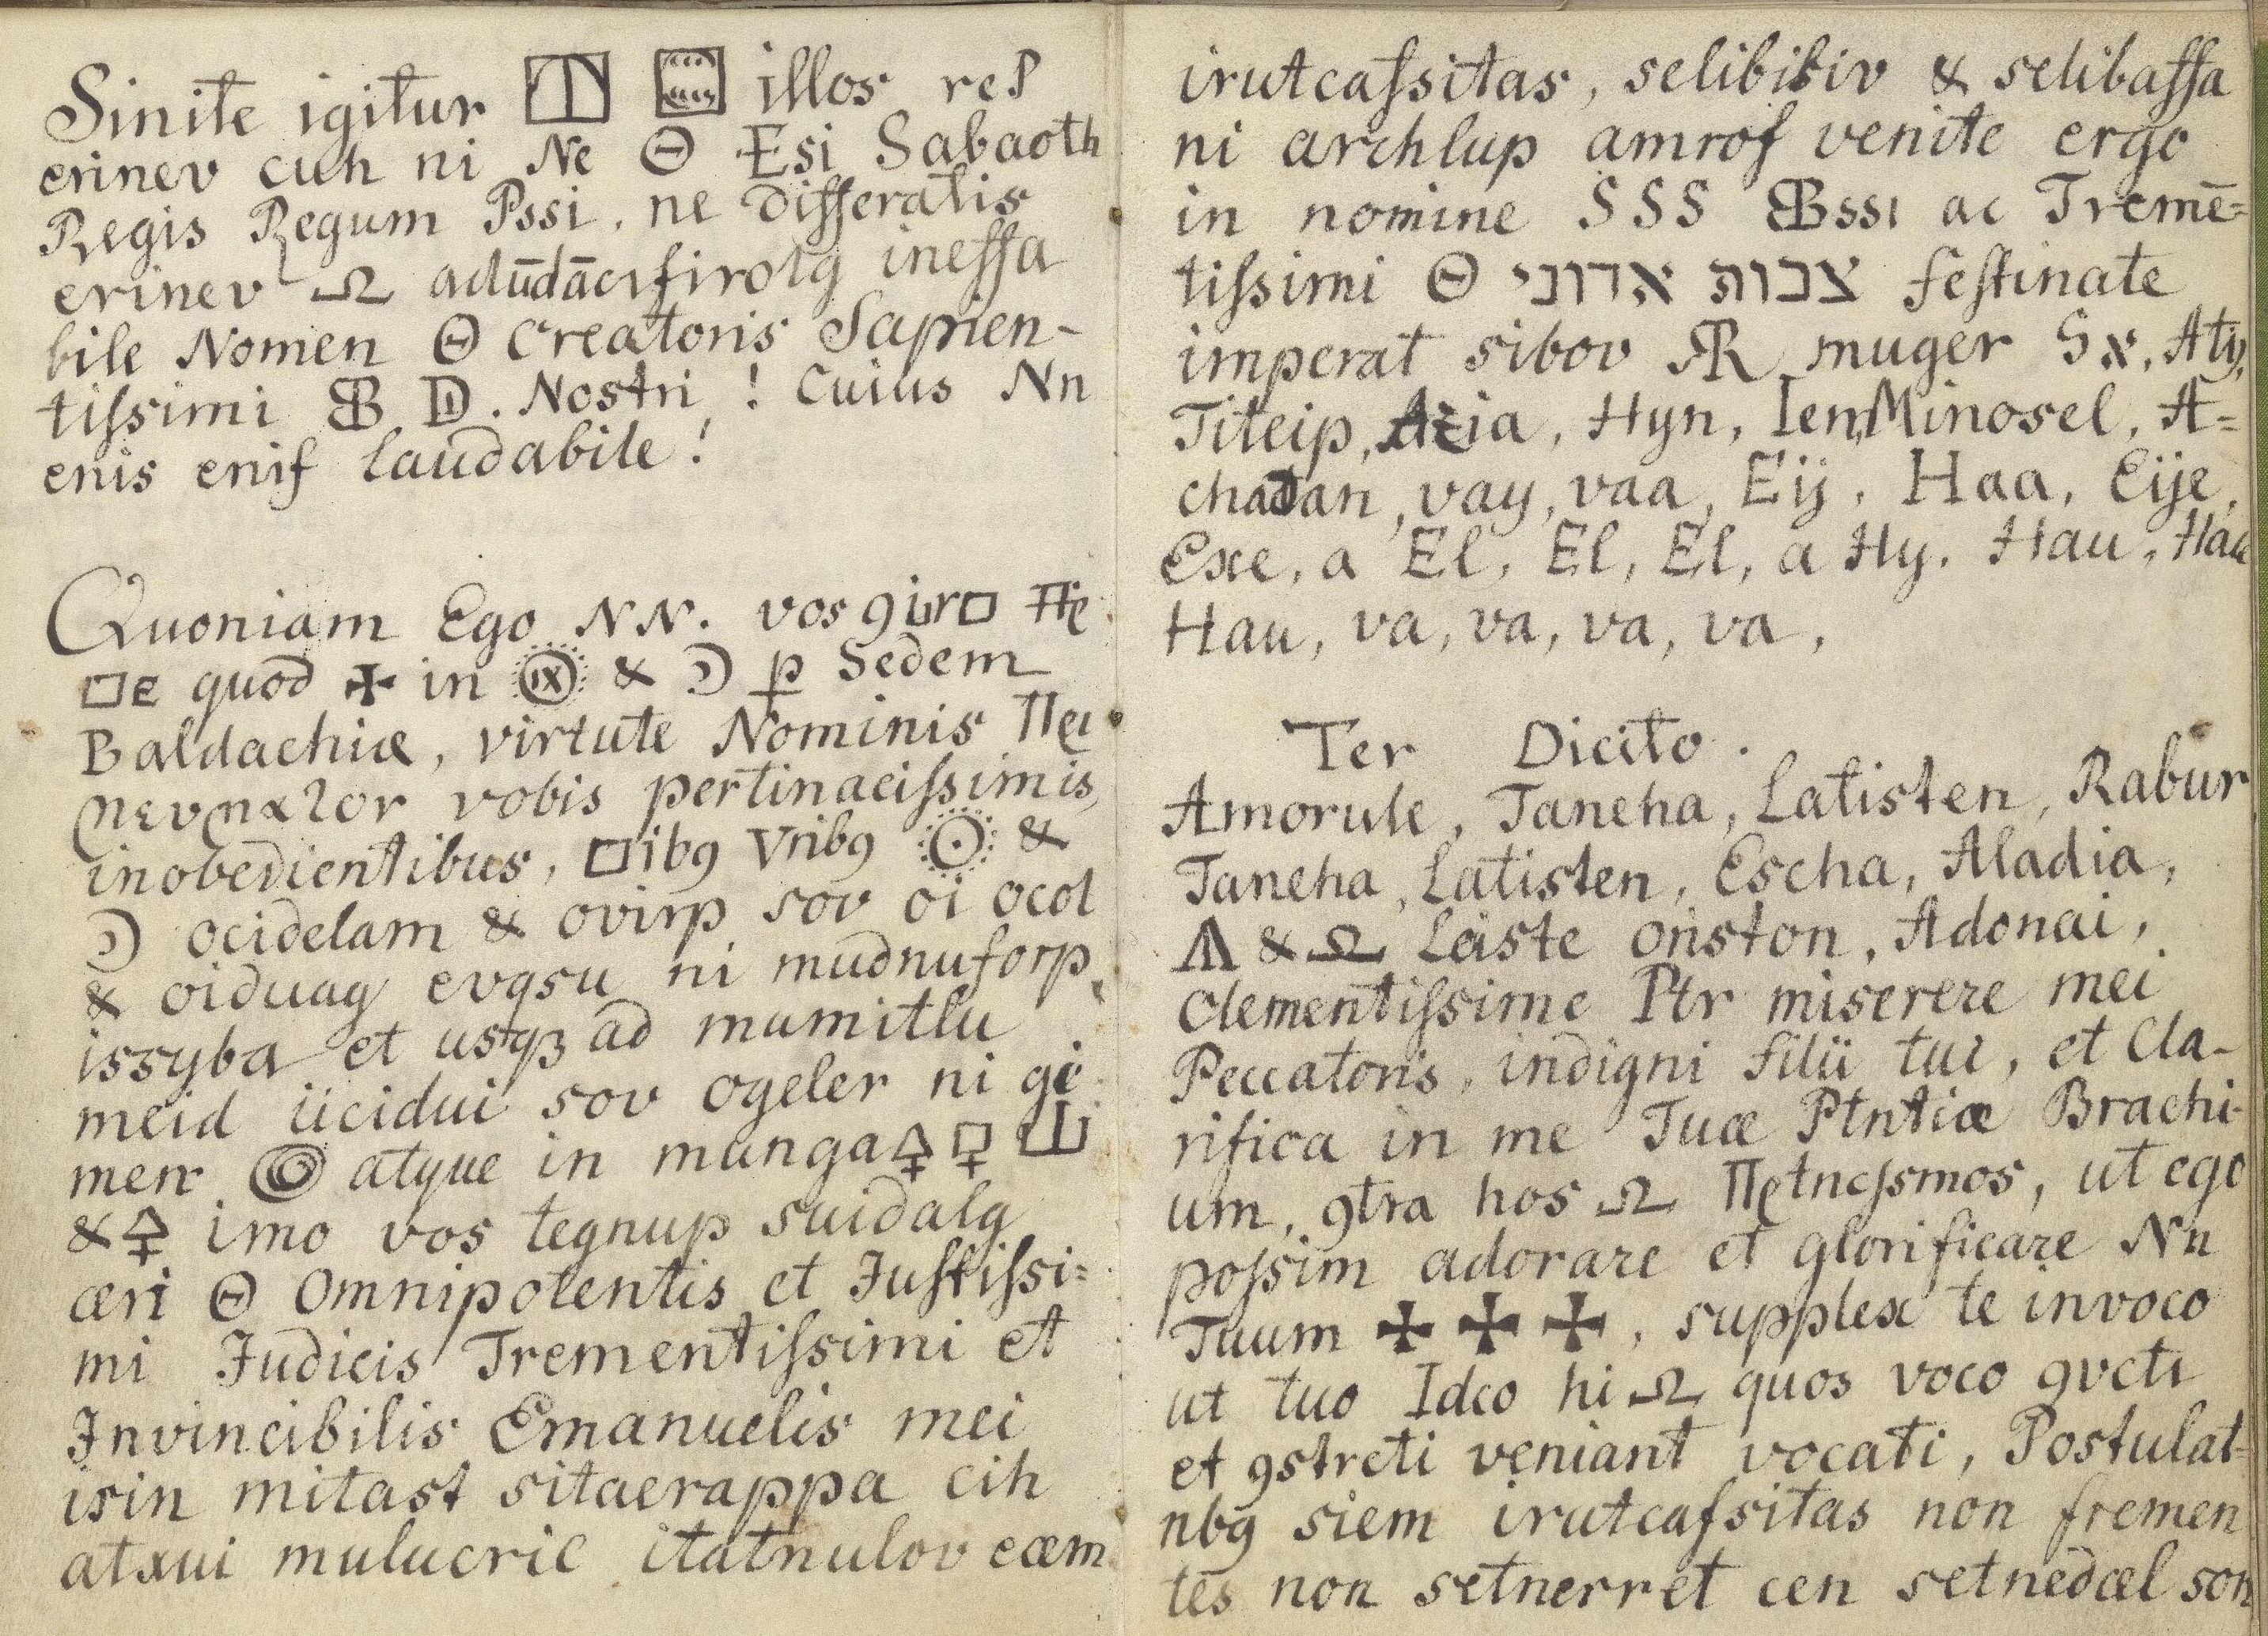 Sinite igitur illos res
erinev cuh ni Ne Θ Esi Sabaoth
Regis Regum Pssi, ne differatis
erinev ♎ adūdācifirolg ineffa
bile Nomen Θ Creatoris Sapien-
tissimi B D. Nostri! Cuius Nn
enis enif laudabile!
Quoniam Ego NN. vos
quod ✠ in & Sedem
Baldachiæ, virtute Nominis
vobis pertinacissimis,
inobedientibus, □ib9 Vrib9 ☉ &
☽ ocidelam & ovirp sov oi ocol
& oiduag evqsu ni mudnuforp
issyba et usqȝ ad mumitlu
meid iicidui sov ogeler ni gi
men atque in manga
& imo vos tegnup suidalg
æri Θ Omnipotentis et Justissi=
mi Judicis Trementissimi et
Invincibilis Emanuelis mei
isin mitast sitaerappa cih
atxui mulucric itatnulov eæm
irutcafsitas, selibisiv & selibaffa
ni archlup amrof venite ergo
in nomine SSS Bssi ac Tremē=
tissimi Θ צבות אדוני festinate
imperat sibov R muger Sx, Aty,
Titeip, Azia, Hyn, Ien, Minosel, A=
chadan, vay, vaa, Eij, Haa, Eije,
Exe, a El, El, El, a Hy. Hau, Hau
Hau, va, va, va, va,
Ter Dicito.
Amorule, Taneha, Latisten, Rabur
Taneha, Latisten, Escha, Aladia,
A & ♎ Leiste oriston, Adonai,
Clementissime Ptr miserere mei
Peccatoris, indigni filii tui, et Cla-
rifica in me Tuæ Ptntiæ Brachi-
um, 9tra hos ♎ , ut ego
possim adorare et glorificare Nn
Tuum ✠ ✠ ✠, supplex te invoco
ut tuo Idco hi ♎ quos voco 9vcti
et 9strcti veniant vocati, Postulat-
nb9 siem irutcafsitas non fremen
tes non setnerret cen setnedæl son